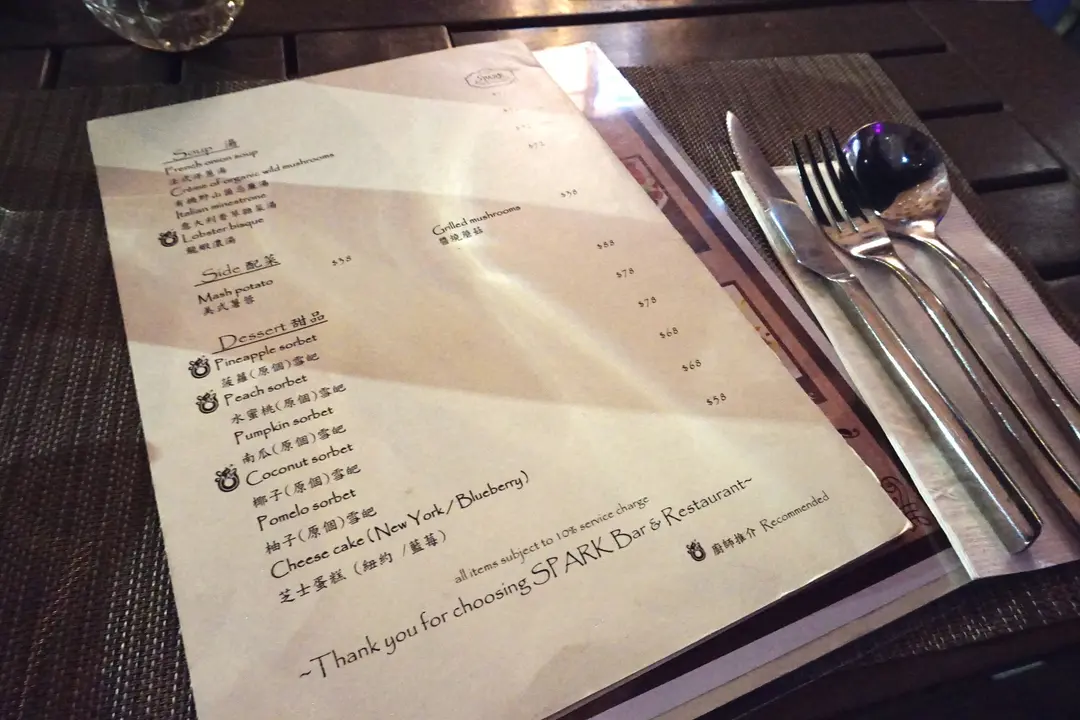 SPARK
Soup 湯
French onion soup
法式洋蔥湯
Crème of organic wild mushrooms
有機野山菌忌廉湯
Italian minestrone
意大利香草雜菜湯
Lobster bisque $72
龍蝦濃湯
Side 配菜
Mash potato $38 Grilled mushrooms $38
美式薯蓉 醬燒蘑菇
Dessert 甜品
Pineapple sorbet $88
菠蘿(原個)雪皅
Peach sorbet $78
水蜜桃(原個)雪皅
Pumpkin sorbet $78
南瓜(原個)雪皅
Coconut sorbet $68
椰子(原個)雪皅
Pomelo sorbet $68
柚子(原個)雪皅
Cheese cake (New York / Blueberry) $58
芝士蛋糕 (紐約 /藍莓)
all items subject to 10% service charge
~Thank you for choosing SPARK Bar & Restaurant~
廚師推介 Recommended